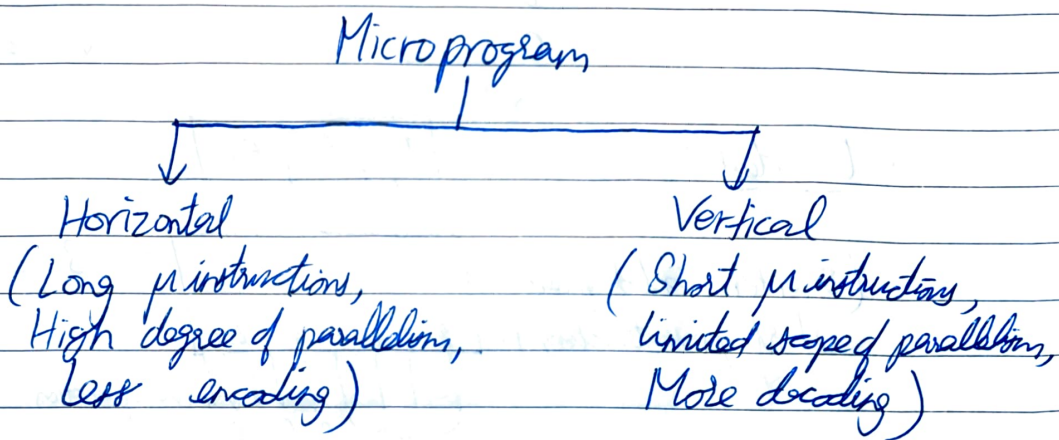 Microprogram
Horizontal
(Long μ instructions,
High degree of parallelism,
Less encoding)
Vertical
(Short μ instructions,
limited scope of parallelism,
More decoding)